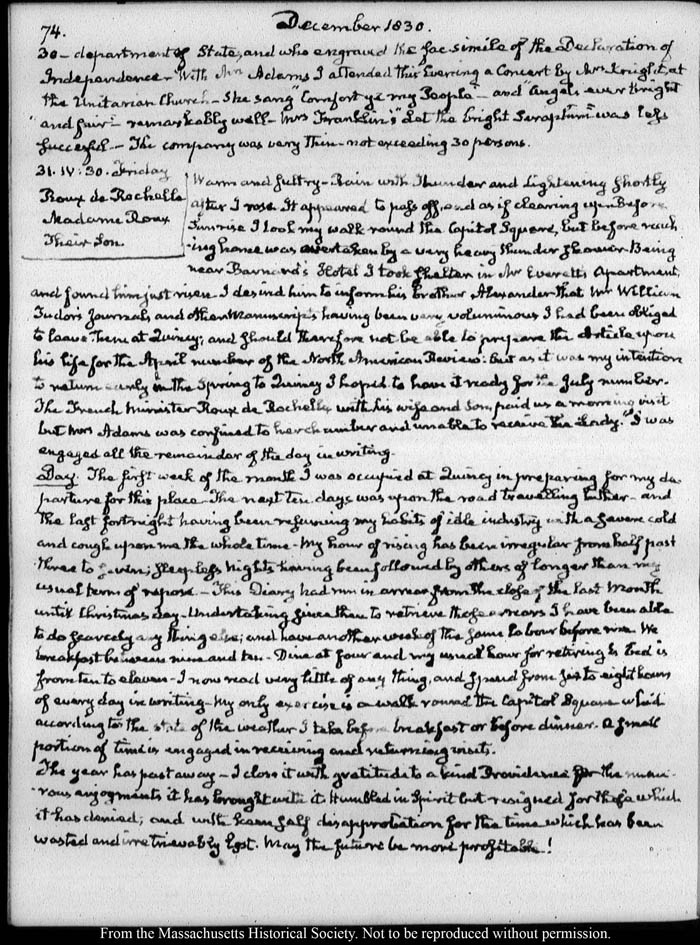 74.
December 1830.
30 – department of State, and who engraved the fac simile of the Declaration of
Independence – With Mrs Adams I attended this Evening a Concert by Mrs Knight, at
the Unitarian Church – She sang "Comfort ye my People" – and "Angels ever bright
and fair" – remarkably well – Mrs Franklin's "Let the bright Seraphim" was less
successful – The company was very thin – not exceeding 30 persons.
31. IV: 30. Friday
Roux de Rochelle
Madame Roux
Their Son.
Warm and sultry – Rain with Thunder and Lightening shortly
after I rose. It appeared to pass off, and as if clearing up – Before
Sunrise I took my walk round the Capitol Square, but before reach-
-ing home was overtaken by a very heavy thunder shower – Being
near Barnard's Hotel I took shelter in Mr Everett's apartment,
and found him just risen – I desired him to inform his brother Alexander that Mr William
Tudor's Journals, and other Manuscripts having been very voluminous I had been obliged
to leave them at Quincy; and should therefore not be able to prepare the Article upon
his life for the April number of the North American Review: but as it was my intention
to return early in the Spring to Quincy I hoped to have it ready for the July number.
The French Minister Roux de Rochelle with his wife and Son, paid us a morning visit
but Mrs Adams was confined to her chamber and unable to receive the Lady. I was
engaged all the remainder of the day in writing.
Day. The first week of the month I was occupied at Quincy in preparing for my de-
parture for this place – The next ten days was upon the road travelling hither – and
the last fortnight having been resuming my habits of idle industry with a severe cold
and cough upon me the whole time – My hour of rising has been irregular from half past
three to seven; sleepless nights having been followed by others of longer than my
usual term of repose – This Diary had run in arrear from the close of the last Month
until Christmas day – Undertaking since then to retrieve these arrears I have been able
to do scarcely any thing else; and have another week of the same labour before me. We
breakfast between nine and ten – Dine at four and my usual hour for retiring to bed is
from ten to eleven – I now read very little of any thing, and spend from six to eight hours
of every day in writing – My only exercise is a walk round the Capitol Square which
according to the state of the weather I take before breakfast or before dinner. A small
portion of time is engaged in receiving and returning visits.
The year has past away – I close it with gratitude to a kind Providence for the nume-
rous enjoyments it has brought with it. Humbled in Spirit but resigned for those which
it has denied; and with keen self disapprobation for the time which has been
wasted and irretrievably lost. May the future be more profitable!
From the Massachusetts Historical Society. Not to be reproduced without permission.